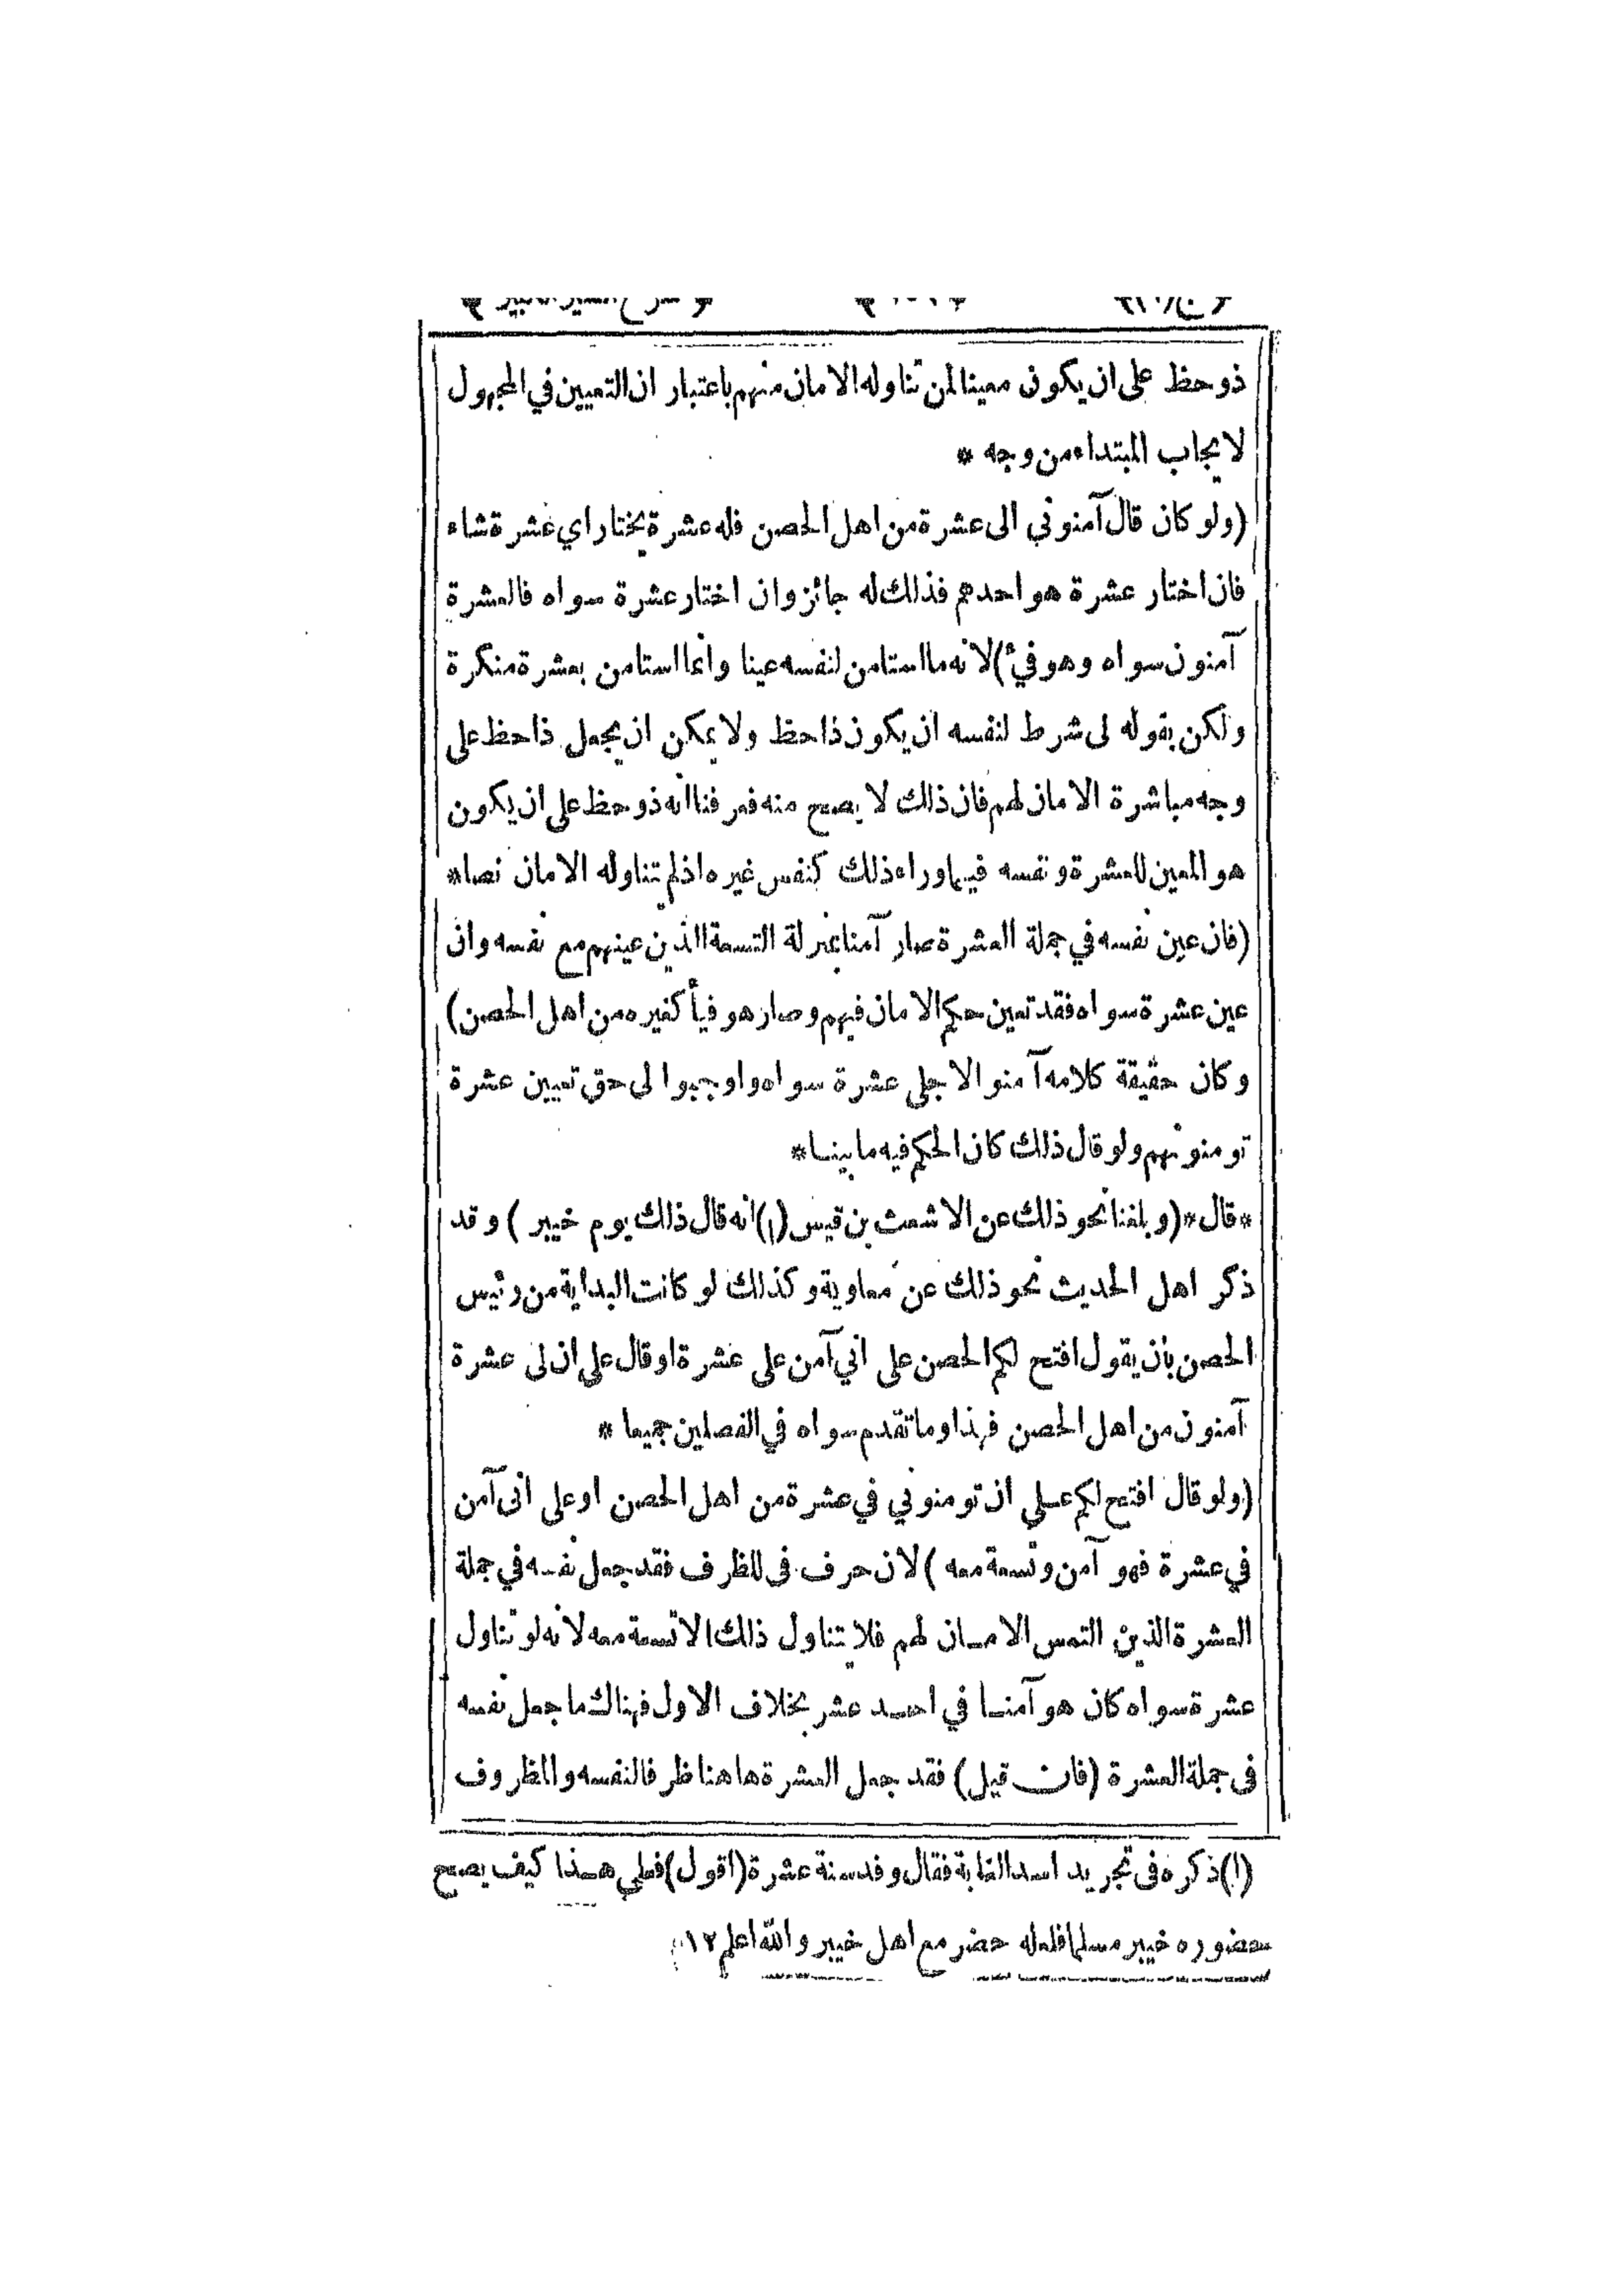 ذو حظ على ان يكون معينا لمن تناوله الامان منهم باعتبار ان التعيين في المجهول
لايجاب المبتداء من وجه *
(ولو كان قال آمنوني الى عشرة من اهل الحصن فله عشرة يختار اي عشرة شاء
فان اختار عشرة هو احدهم فذلك له جائز وان اختار عشرة سواه فالعشرة
آمنون سواه وهو فئ) لانه ما استامن لنفسه عينا وانما استامن بعشرة منكرة
ولكن بقوله لى شرط لنفسه ان يكون ذا حظ ولا يمكن ان يجعل ذا حظ على
وجه مباشرة الامان لهم فان ذلك لا يصح منه فعرفنا انه ذو حظ على ان يكون
هو المعين للعشرة ونفسه فيما وراء ذلك كنفس غيره اذ لم تتناوله الامان نصا *
(فان عين نفسه في جملة العشرة صار آمنا بمنزلة التسعة الذين عينهم مع نفسه وان
عين عشرة سواه فقد تعين حكم الامان فيهم وصار هو فيأ كغيره من اهل الحصن)
وكان حقيقة كلامه آمنوا لاجلى عشرة سواه واوجبوا لى حق تعيين عشرة
تومنونهم ولو قال ذلك كان الحكم فيه ما بينا *
* قال * (وبلغنا نحو ذلك عن الاشعث بن قيس (١) انه قال ذلك يوم خيبر) وقد
ذكر اهل الحديث نحو ذلك عن معاوية وكذلك لو كانت البداية من رئيس
الحصن بان يقول افتح لكم الحصن على اني آمن على عشرة او قال على ان لى عشرة
آمنون من اهل الحصن فهذا وما تقدم سواه في الفصلين جميعا *
(ولو قال افتح لكم على ان تومنوني في عشرة من اهل الحصن او على انى آمن
في عشرة فهو آمن وتسعة معه) لان حرف فى للظرف فقد جعل نفسه في جملة
العشرة الذين التمس الامان لهم فلا يتناول ذلك الا تسعة معه لانه لو تناول
عشرة سواه كان هو آمنا في احد عشر بخلاف الاول فهناك ما جعل نفسه
فى جملة العشرة (فان قيل) فقد جعل العشرة هاهنا ظرفا لنفسه والمظروف
(١) ذكره فى تجريد اسد الغابة فقال وفد سنة عشرة (اقول) فعلى هذا كيف يصح
حضوره خيبر مسلما فلعله حضر مع اهل خيبر والله اعلم ١٢